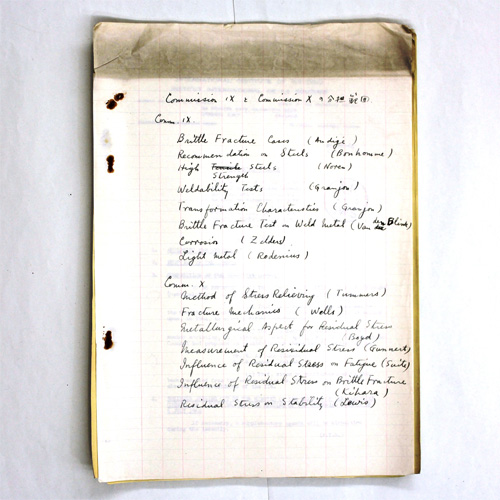 Commission IX と Commission X の分担範囲
Comm. IX
Brittle Fracture Cases (Andige)
Recommendation on Steels (Bonhomme)
High Tensile Steels (Noren)
Strength
Weldability Tests (Granjon)
Transformation Characteristics (Granjon)
Brittle Fracture Test on Weld Metal (Van den Blink)
Corrosion (Zidders)
Light Metal (Rodenius)
Comm. X
Method of Stress Relieving (Tummers)
Fracture Mechanics (Wells)
Metallurgical Aspect for Residual Stress
(Boyd)
Measurement of Residual Stress (Gunnert)
Influence of Residual Stress on Fatigue (Suite)
Influence of Residual Stress on Brittle Fracture
(Kihara)
Residual Stress on Stability (Lewis)